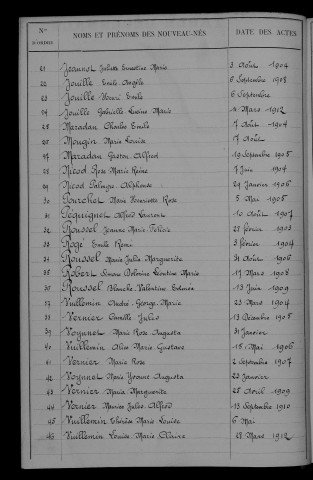 Nos D'ORDRE NOMS ET PRÉNOMS DES NOUVEAU-NÉS DATE DES ACTES
21 Jeannot Juliette Ernestine Marie 3 Août 1904
22 Jouille Emile Angèle 6 Septembre 1908
23 Jouille Henri Emile 6 Septembre
24 Jouille Gabrielle Marie 11 Mars 1912
25 Maradan Charles Emile 7 Août 1904
26 Mougin Marie Louise 17 Août
27 Maradan Gaston Alfred 19 Septembre 1905
28 Nicod Rose Marie Reine 7 Juin 1904
29 Nicod Alphonse 24 Janvier 1906
30 Pourchet Marie Henriette Rose 5 Mai 1905
31 Pequignet Alfred Laurent 10 Août 1907
32 Roussel Jeanne Marie 28 Février 1903
33 Roge Emile Remi 3 Février 1904
34 Roussel Marie Julie Marguerite 31 Août 1906
35 Robert Simone Léontine Marie 17 Mars 1908
36 Roussel Blanche Valentine 13 Juin 1909
37 Vuillemin André George Marie 23 Mars 1904
38 Vernier Camille Jules 13 Décembre 1905
39 Voynnet Marie Rose Augusta 31 Janvier
40 Vuillemin Alix Marie Gustave 15 Mai 1906
41 Vernier Marie Rose 2 Septembre 1907
42 Voynnet Marie Yvonne Augusta 23 Janvier
43 Vernier Marie Marguerite 25 Août 1909
44 Vernier Maurice Jules Alfred 13 Septembre 1910
45 Vuillemin Thérèse Marie Louise 6 Mai
46 Vuillemin Louise Marie Claire 28 Mars 1912